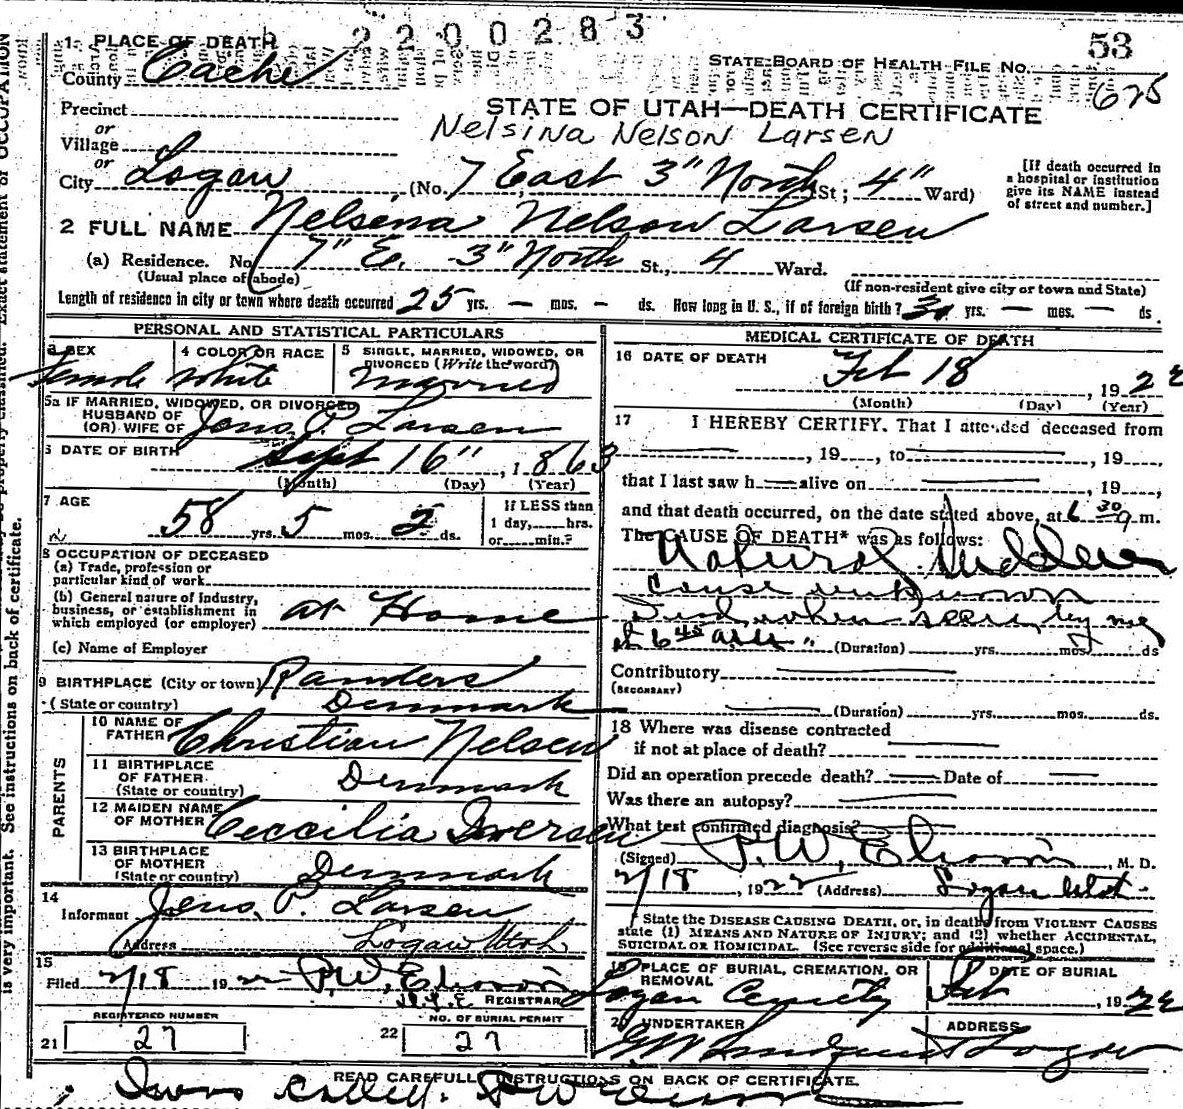 2200283
53
1. PLACE OF DEATH
STATE BOARD OF HEALTH FILE No.
County Cache
675
Precinct
STATE OF UTAH—DEATH CERTIFICATE
or
Nelsina Nelson Larsen
Village
or
City Logan (No. 7 East 3" North St; 4" Ward)
[If death occurred in
a hospital or institution
give its NAME instead
of street and number.]
2 FULL NAME Nelsena Nelson Larsen
(a) Residence. No. 7" E. 3" North St., 4 Ward.
(Usual place of abode)
(If non-resident give city or town and State)
Length of residence in city or town where death occurred 25 yrs. — mos. — ds. How long in U. S., if of foreign birth? yrs. — mos. — ds.
PERSONAL AND STATISTICAL PARTICULARS
3 SEX
4 COLOR OR RACE
5 SINGLE, MARRIED, WIDOWED, OR
DIVORCED (Write the word)
Female White Married
5a IF MARRIED, WIDOWED, OR DIVORCED
HUSBAND OF
(OR) WIFE OF Jens P. Larsen
6 DATE OF BIRTH
Sept 16", 1863
(Month) (Day) (Year)
7 AGE
58 yrs. 5 mos. 2 ds.
If LESS than
1 day, hrs.
or min.?
8 OCCUPATION OF DECEASED
(a) Trade, profession or
particular kind of work
(b) General nature of industry,
business, or establishment in
which employed (or employer) at Home
(c) Name of Employer
9 BIRTHPLACE (City or town) Randers
(State or country) Denmark
PARENTS
10 NAME OF
FATHER Christian Nelsen
11 BIRTHPLACE
OF FATHER
(State or country) Denmark
12 MAIDEN NAME
OF MOTHER Ceccilia Iversen
13 BIRTHPLACE
OF MOTHER
(State or country) Denmark
14
Informant Jens P. Larsen
Address Logan Utah
15
Filed 2/18 19 22 P.W. Eliason
REGISTRAR
REGISTERED NUMBER
21 27
NO. OF BURIAL PERMIT
22 27
MEDICAL CERTIFICATE OF DEATH
16 DATE OF DEATH
Feb 18, 1922
(Month) (Day) (Year)
17 I HEREBY CERTIFY, That I attended deceased from
—, 19 , to —, 19
that I last saw h — alive on —, 19 ,
and that death occurred, on the date stated above, at 6 30 a m.
The CAUSE OF DEATH* was as follows:
Natural. Sudden
Cause unknown
Dead when seen by me
at 6 45 am" (Duration) yrs. mos. ds
Contributory —
(SECONDARY)
— (Duration) yrs. mos. ds.
18 Where was disease contracted
if not at place of death? —
Did an operation precede death? — Date of —
Was there an autopsy? —
What test confirmed diagnosis? —
(Signed) P.W. Eliason, M. D.
2/18, 1922 (Address) Logan Utah.
State the DISEASE CAUSING DEATH, or, in deaths from VIOLENT CAUSES
state (1) MEANS AND NATURE OF INJURY; and (2) whether ACCIDENTAL,
SUICIDAL OR HOMICIDAL. (See reverse side for additional space.)
19 PLACE OF BURIAL, CREMATION, OR
REMOVAL
DATE OF BURIAL
Logan Cemetery Feb , 1922
20 UNDERTAKER
ADDRESS
Logan
READ CAREFULLY INSTRUCTIONS ON BACK OF CERTIFICATE.
I was called. P W Eliason
is very important. See instructions on back of certificate.
properly classified. Exact statement of OCCUPATION